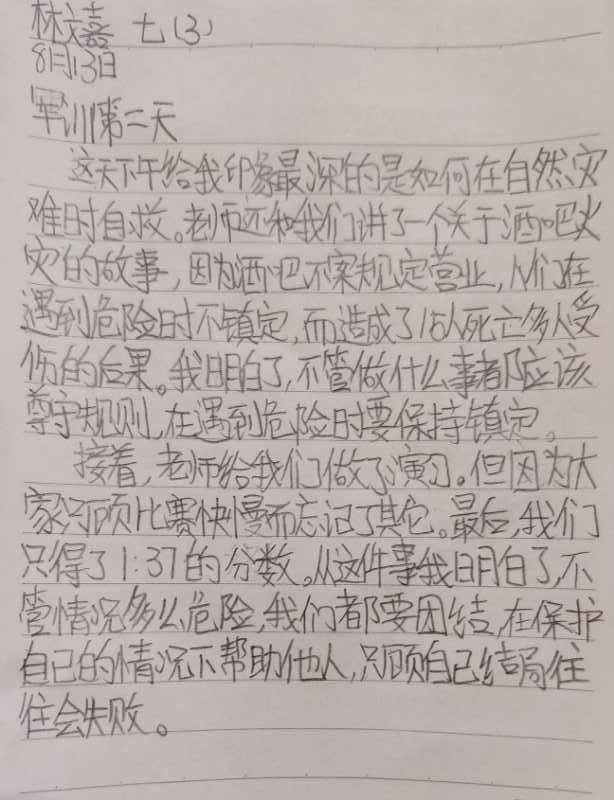 林文嘉 七(3)
8月13日
军训第二天
这天下午给我印象最深的是如何在自然灾
难时自救。老师还和我们讲了一个关于酒吧火
灾的故事,因为酒吧不案规定营业,人们在
遇到危险时不镇定,而造成了15人死亡多人受
伤的后果。我明白了,不管做什么事都应该
尊守规则,在遇到危险时要保持镇定。
接着,老师给我们做了演习。但因为大
家只顾比赛快慢而忘记了其它。最后,我们
只得了1:37的分数。从这件事我明白了,不
管情况多么危险,我们都要团结,在保护
自己的情况下帮助他人,只顾自己结局往
往会失败。